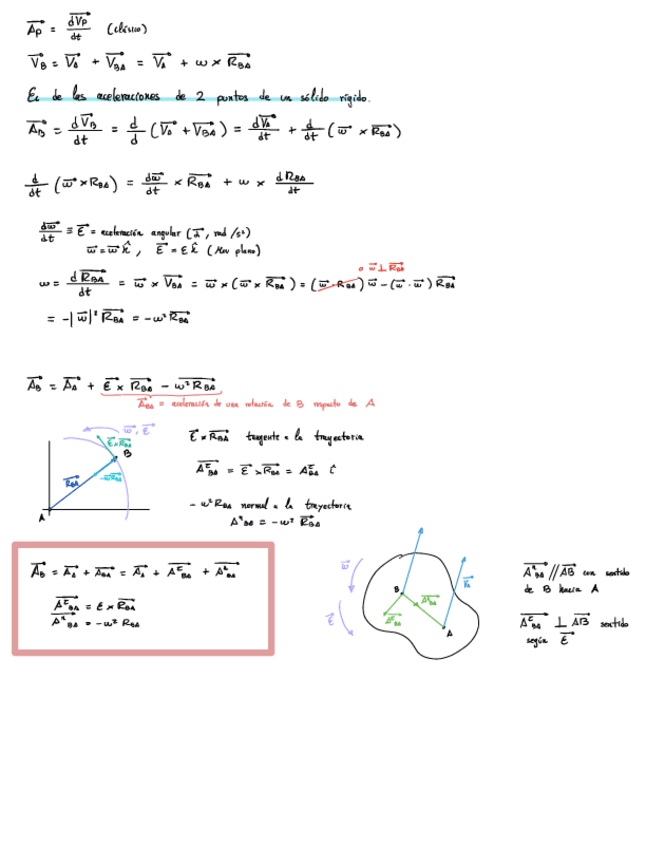 A⃗_P = dV⃗_P/dt (clásico)
V⃗_B = V⃗_A + V⃗_BA = V⃗_A + ω × R⃗_BA
Ec de las aceleraciones de 2 puntos de un sólido rígido.
A⃗_B = dV⃗_B/dt = d/d (V⃗_A + V⃗_BA) = dV⃗_A/dt + d/dt (ω⃗ × R⃗_BA)
d/dt (ω⃗ × R_BA) = dω⃗/dt × R⃗_BA + ω × dR_BA/dt
dω⃗/dt ≡ ε⃗ = aceleración angular (α⃗, rad/s²)
ω⃗ = ω⃗ k̂, ε⃗ = ε k̂ (Mov plano)
0 ω⃗ ⊥ R⃗_BA
ω = dR⃗_BA/dt = ω⃗ × V⃗_BA = ω⃗ × (ω⃗ × R⃗_BA) = (ω⃗ · R_BA) ω⃗ - (ω⃗ · ω⃗) R⃗_BA
= -|ω⃗|² R⃗_BA = -ω² R⃗_BA
A⃗_B = A⃗_A + ε⃗ × R⃗_BA - ω² R⃗_BA
A⃗_BA = aceleración de una rotación de B respecto de A
ω⃗, ε⃗
ε⃗ × R_BA
B
R⃗_BA
-ω²R_BA
A
ε⃗ × R⃗_BA tangente a la trayectoria
A⃗ᵗ_BA = ε⃗ × R⃗_BA = Aᵗ_BA t̂
- ω² R_BA normal a la trayectoria
Aⁿ_BA = -ω² R⃗_BA
A⃗_B = A⃗_A + A⃗_BA = A⃗_A + A⃗ᵗ_BA + A⃗ⁿ_BA
A⃗ᵗ_BA = ε × R⃗_BA
A⃗ⁿ_BA = -ω² R_BA
A
ω⃗
B
A⃗ⁿ_BA
A⃗ᵗ_BA
A
ε⃗
A⃗ⁿ_BA // A⃗B con sentido
de B hacia A
A⃗ᵗ_BA ⊥ A⃗B sentido
según ε⃗